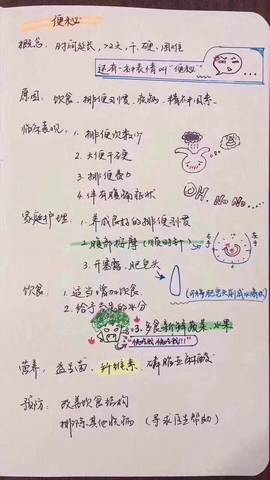 便秘
概念：时间延长，>2天，干、硬、困难
还有一种表情叫“便秘”
原因：饮食、排便习惯、疾病、精神因素
临床表现：1. 排便次数少
2. 大便干硬
3. 排便费力
4. 伴有腹痛症状
OH. No No...
家庭护理：1. 养成良好的排便习惯
2. 腹部按摩（顺时针）
右 左
3. 开塞露、肥皂头
饮食：1. 适当增加饮食
2. 给予充足的水分
3. 多食新鲜蔬菜、水果
“快吃我，快吃我!!!”
营养：益生菌、纤维素、磷脂
预防：改善饮食结构
排除其他疾病（寻求医生帮助）